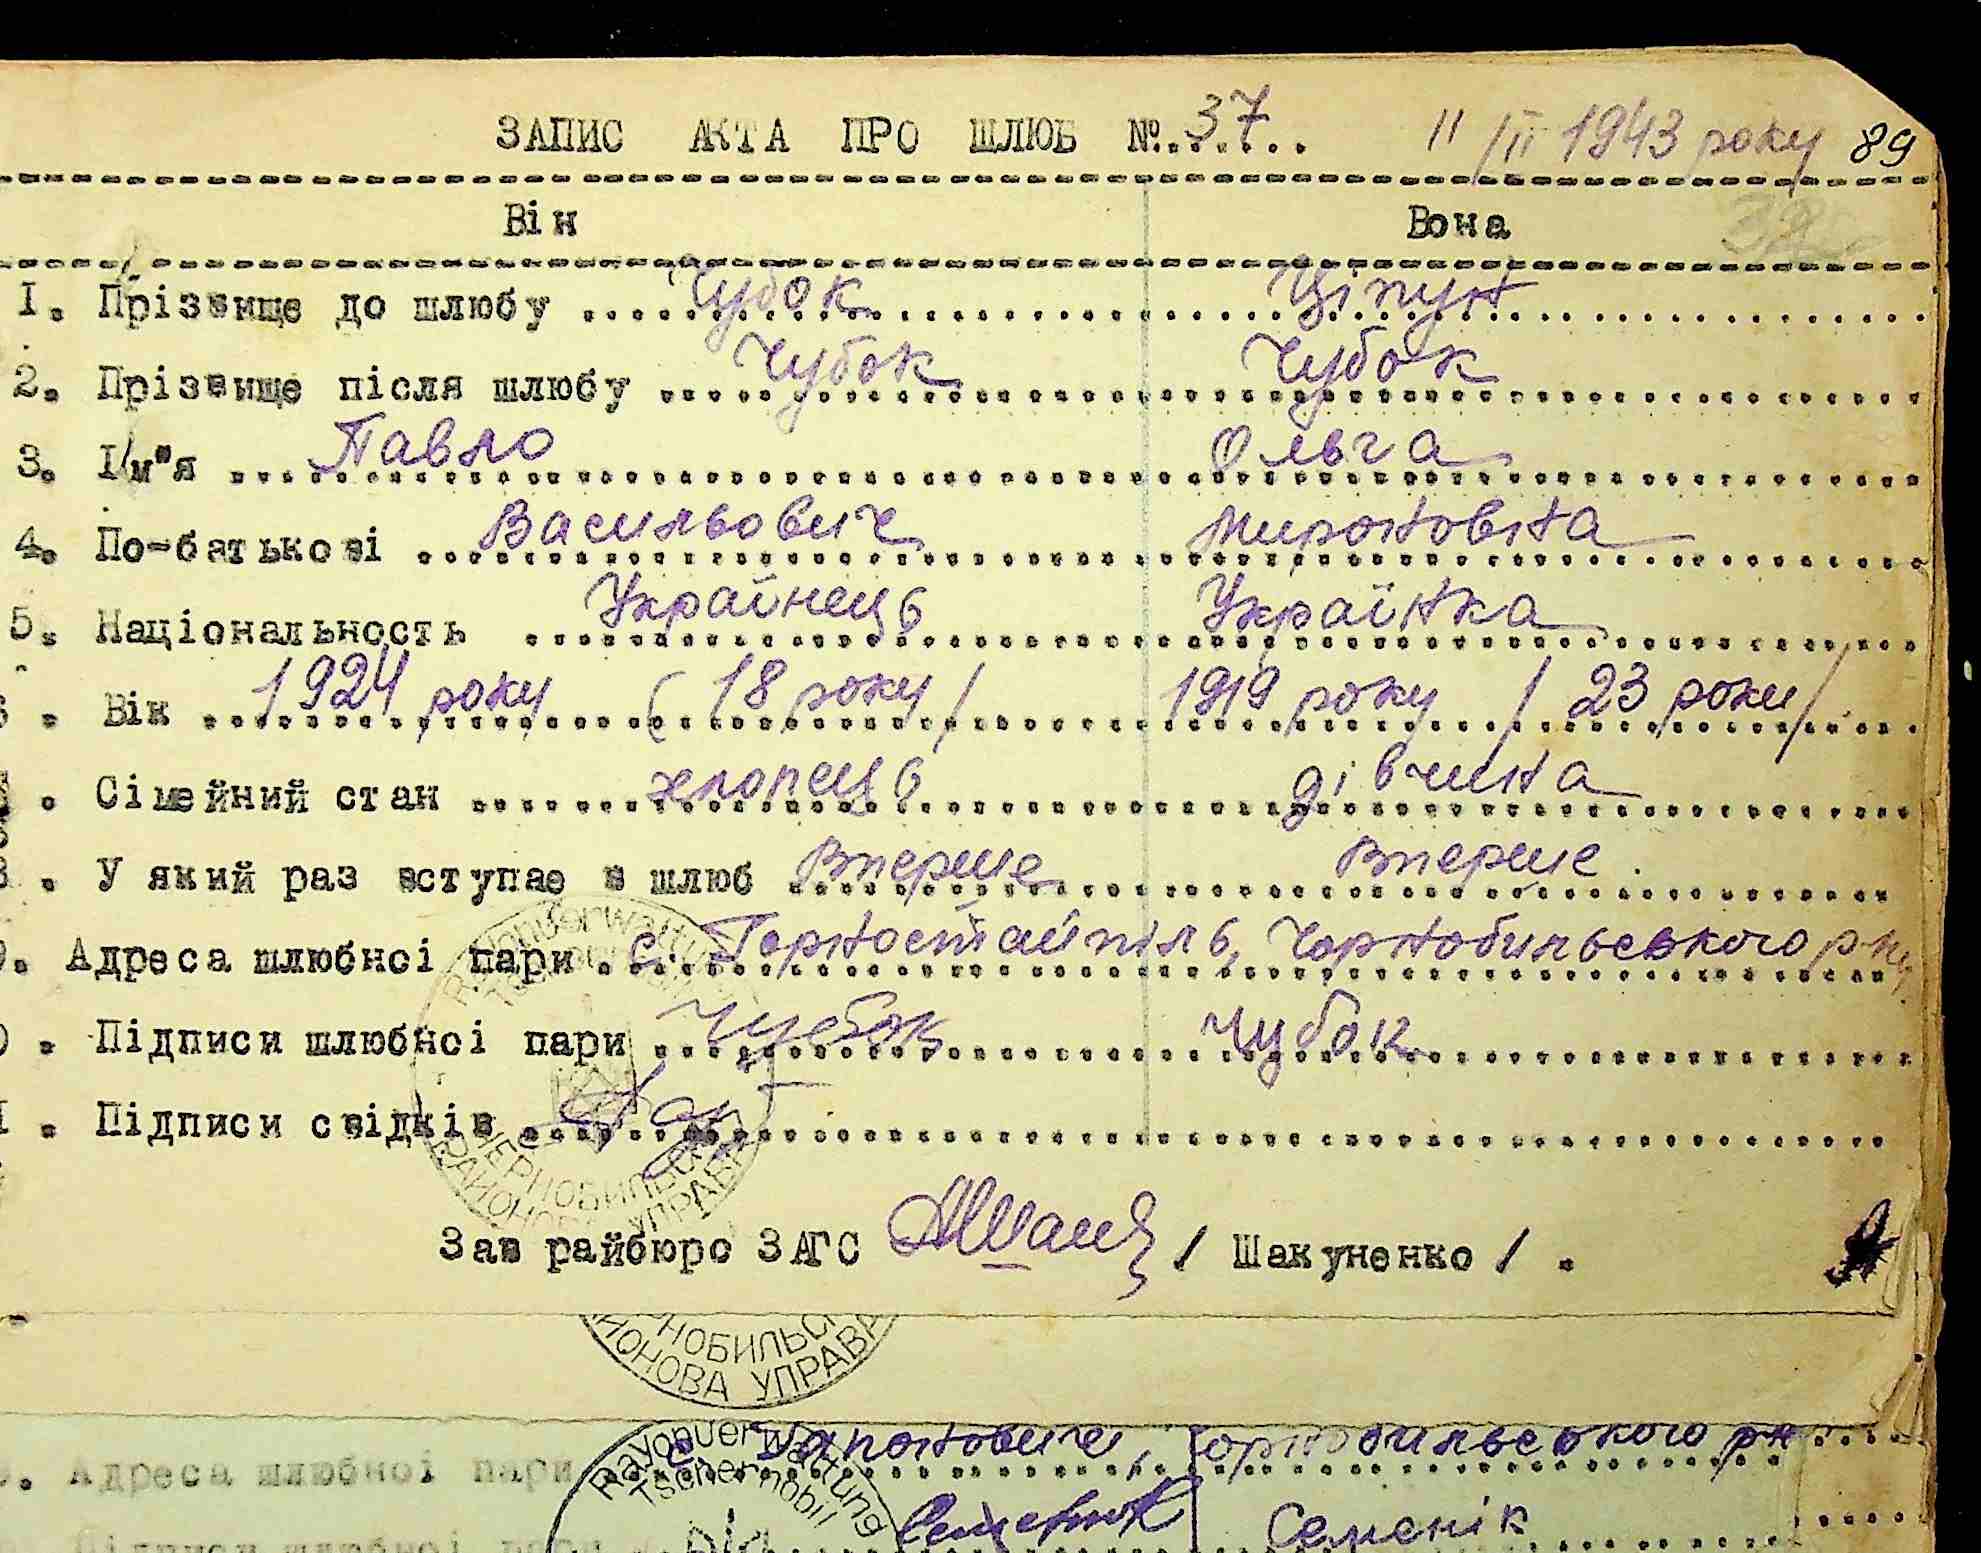 ЗАПИС АКТА ПРО ШЛЮБ №. 37 11/II 1943 року 89
Він Вона
1. Прізвище до шлюбу Чубок Ціпун
2. Прізвище після шлюбу Чубок Чубок
3. Ім"я Павло Ольга
4. По-батькові Васильович Мироновна
5. Національность Українець Українка
. Вік 1924 року (18 року/ 1919 року /23 роки/
. Сімейний стан хлопець дівчина
. У який раз вступає в шлюб Вперше Вперше
. Адреса шлюбної пари с. Горностайпіль, Чорнобильського р-ну
. Підписи шлюбної пари Чубок Чубок
. Підписи свідків
Rayonverwaltung
ЧЕРНОБИЛЬСЬКА
РАЙОНОВА УПРАВА
Зав райбюро ЗАГС / Шакуненко / .
НОБИЛЬСЬ
ЙОНОВА УПРАВА
Rayonverwaltung
Tschernobil
. Адреса шлюбної пари с. Чорнобильського р-н
Підписи шлюбної пари Семенік